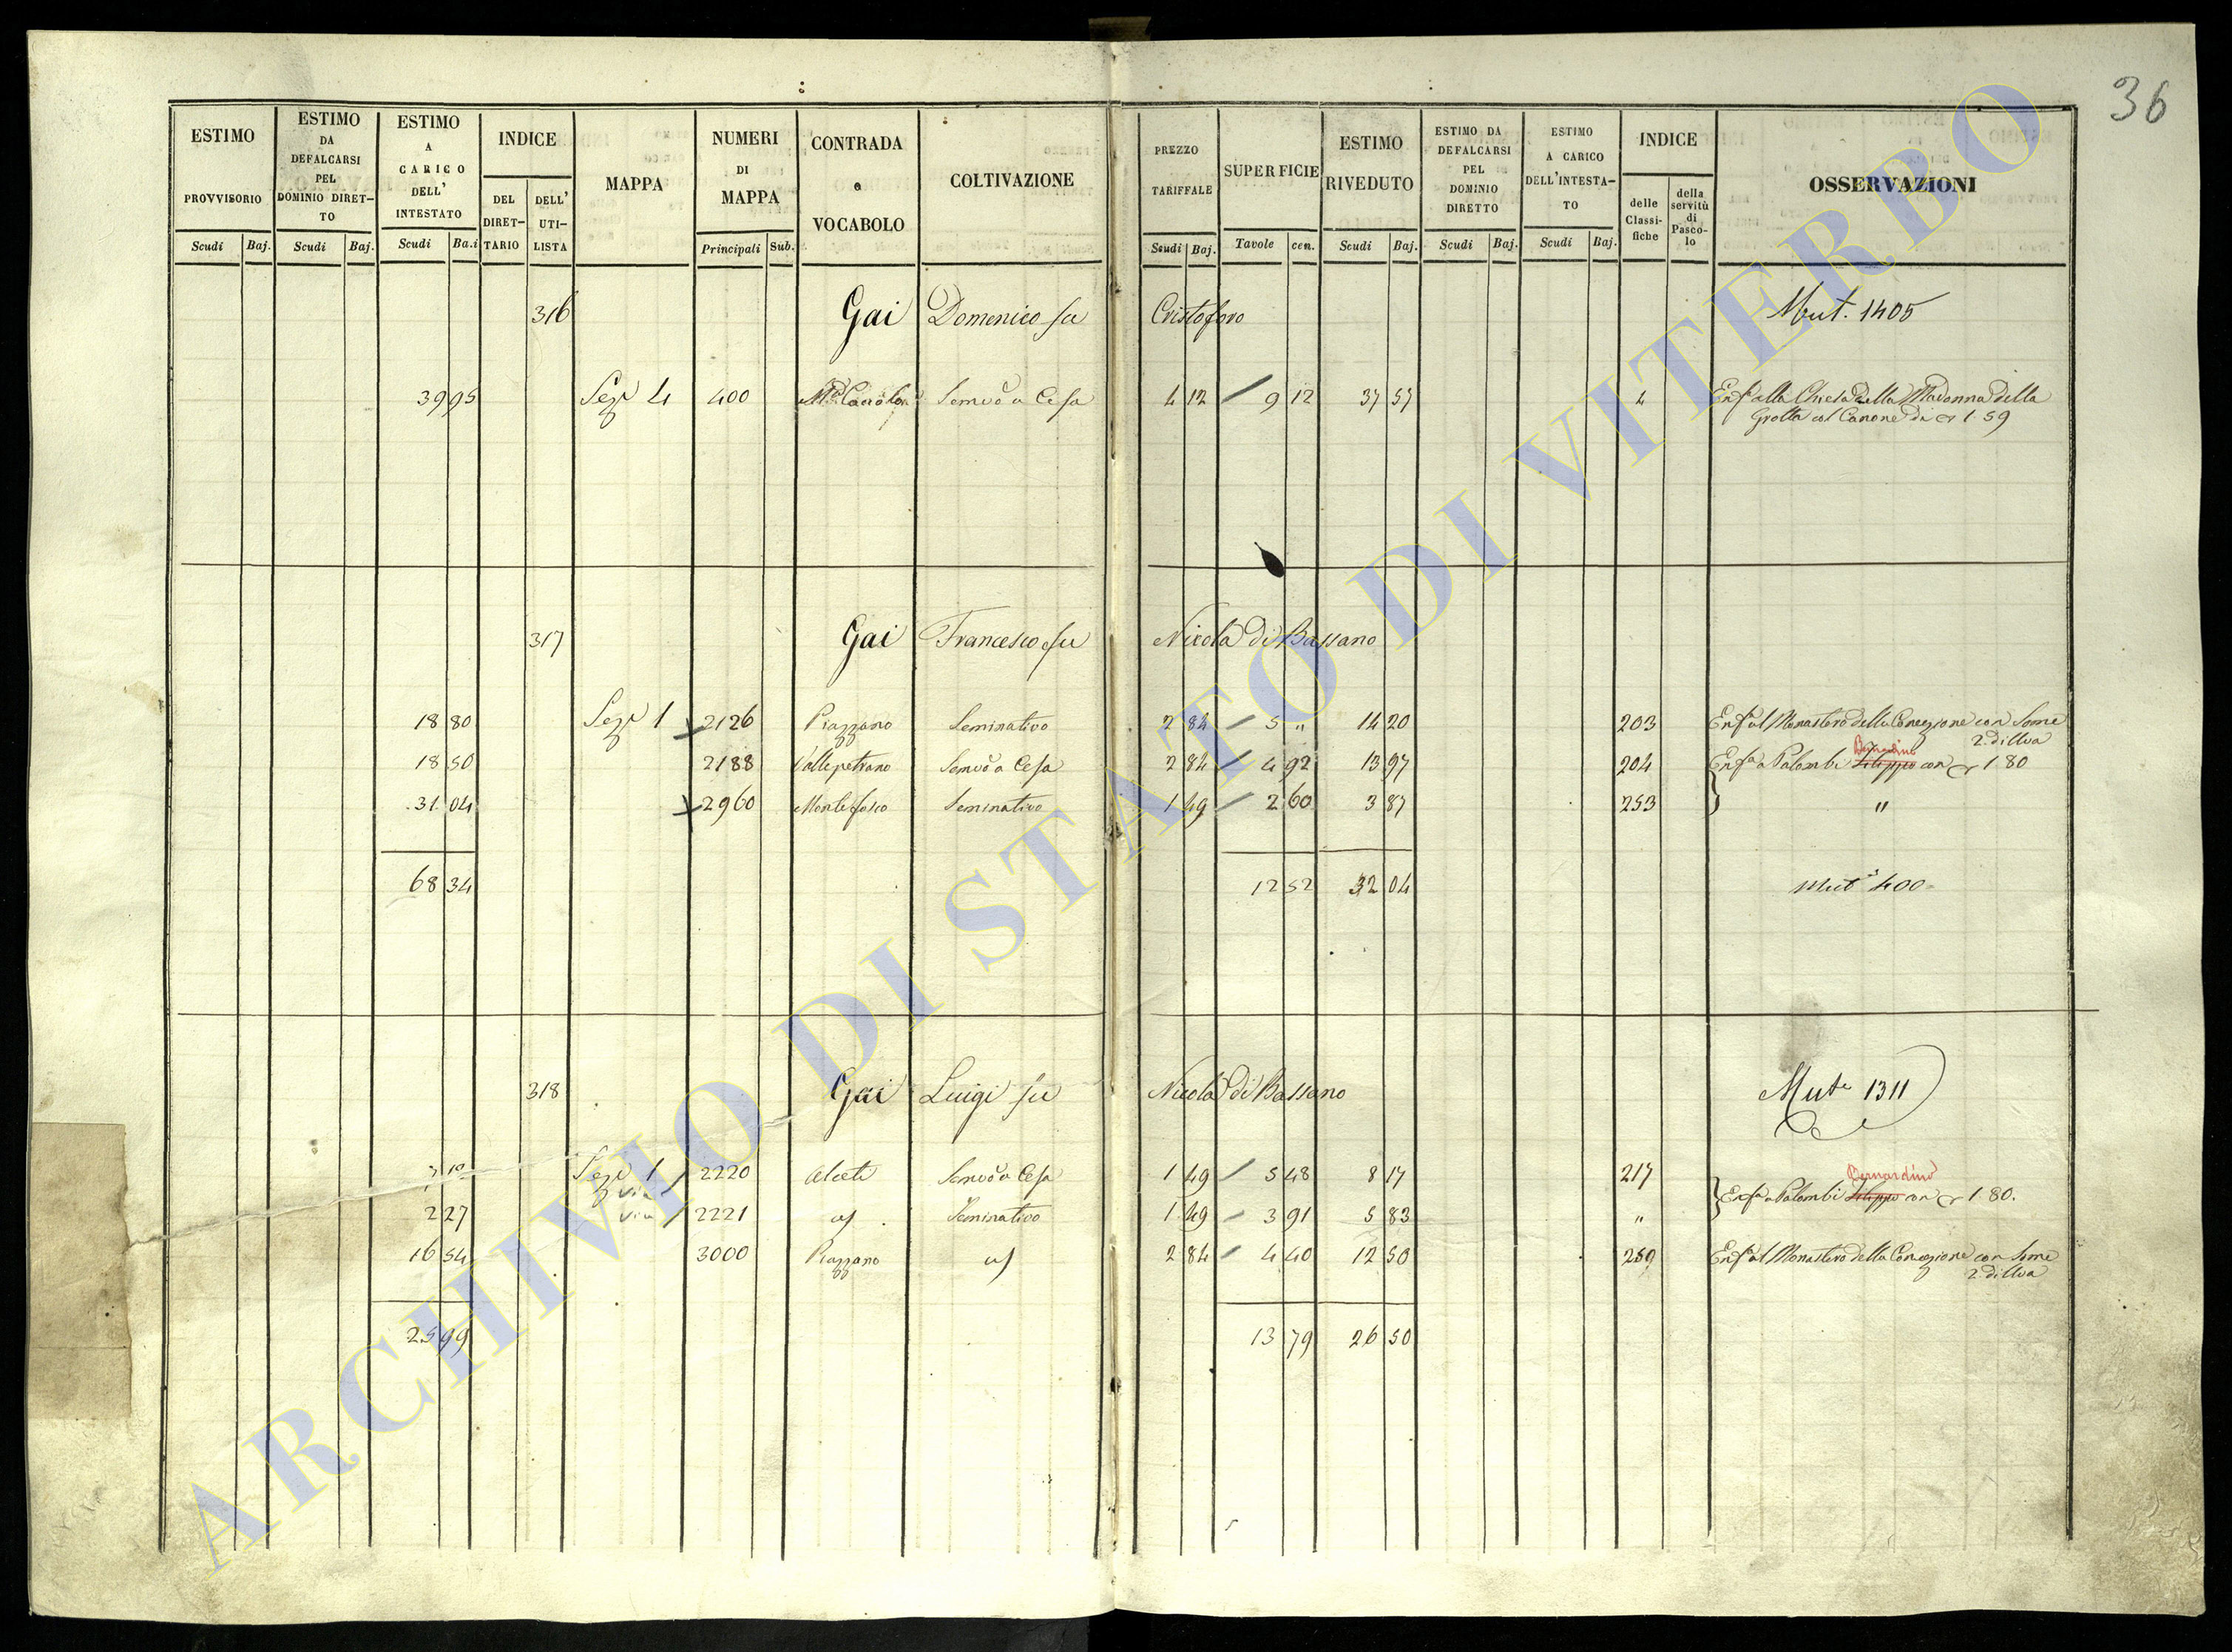 36
ESTIMO PROVVISORIO Scudi Baj.
ESTIMO DA DEFALCARSI PEL DOMINIO DIRET-TO Scudi Baj.
ESTIMO A CARICO DELL' INTESTATO Scudi Ba.i
INDICE DEL DIRET-TARIO DELL' UTI-LISTA
MAPPA
NUMERI DI MAPPA Principali Sub.
CONTRADA o VOCABOLO
COLTIVAZIONE
PREZZO TARIFFALE Scudi Baj.
SUPERFICIE Tavole cen.
ESTIMO RIVEDUTO Scudi Baj.
ESTIMO DA DEFALCARSI PEL DOMINIO DIRETTO Scudi Baj.
ESTIMO A CARICO DELL'INTESTA-TO Scudi Baj.
INDICE delle Classi-fiche della servitù di Pasco-lo
OSSERVAZIONI
316 Gai Domenico fu Cristoforo Mut. 1405
39 95 Sez.e 4 400 Semvo a Cesa 4 12 / 9 12 37 57 4 Enfa alla Chiesa della Madonna della
Grotta col Canone di 1 59
317 Gai Francesco fu Nicola di Bassano
18 80 Sez.e 1 2126 Piazzano Seminativo 2 84 / 5 " 14 20 203 Enfa al Monastero della Concezione con Some
2. di Uva
Bernardino
18 50 2188 Vallepetrano Semvo a Cesa 2 84 / 4 92 13 97 204 Enfa a Palombi Filippo con 1 80
31 04 2960 Montefosco Seminativo 1 49 / 2 60 3 87 253 "
68 34 12 52 32 04 Muta 400
318 Gai Luigi fu Nicola di Bassano Muta 1311
Bernardino
Sez.e 1 via 2220 Semvo a Cesa 1 49 / 5 48 8 17 217 Enfa a Palombi Filippo con 1 80.
2 27 via 2221 Seminativo 1 49 / 3 91 5 83 "
16 54 3000 Piazzano 2 84 / 4 40 12 50 259 Enfa al Monastero della Concezione con Some
2. di Uva
25 99 13 79 26 50
ARCHIVIO DI STATO DI VITERBO